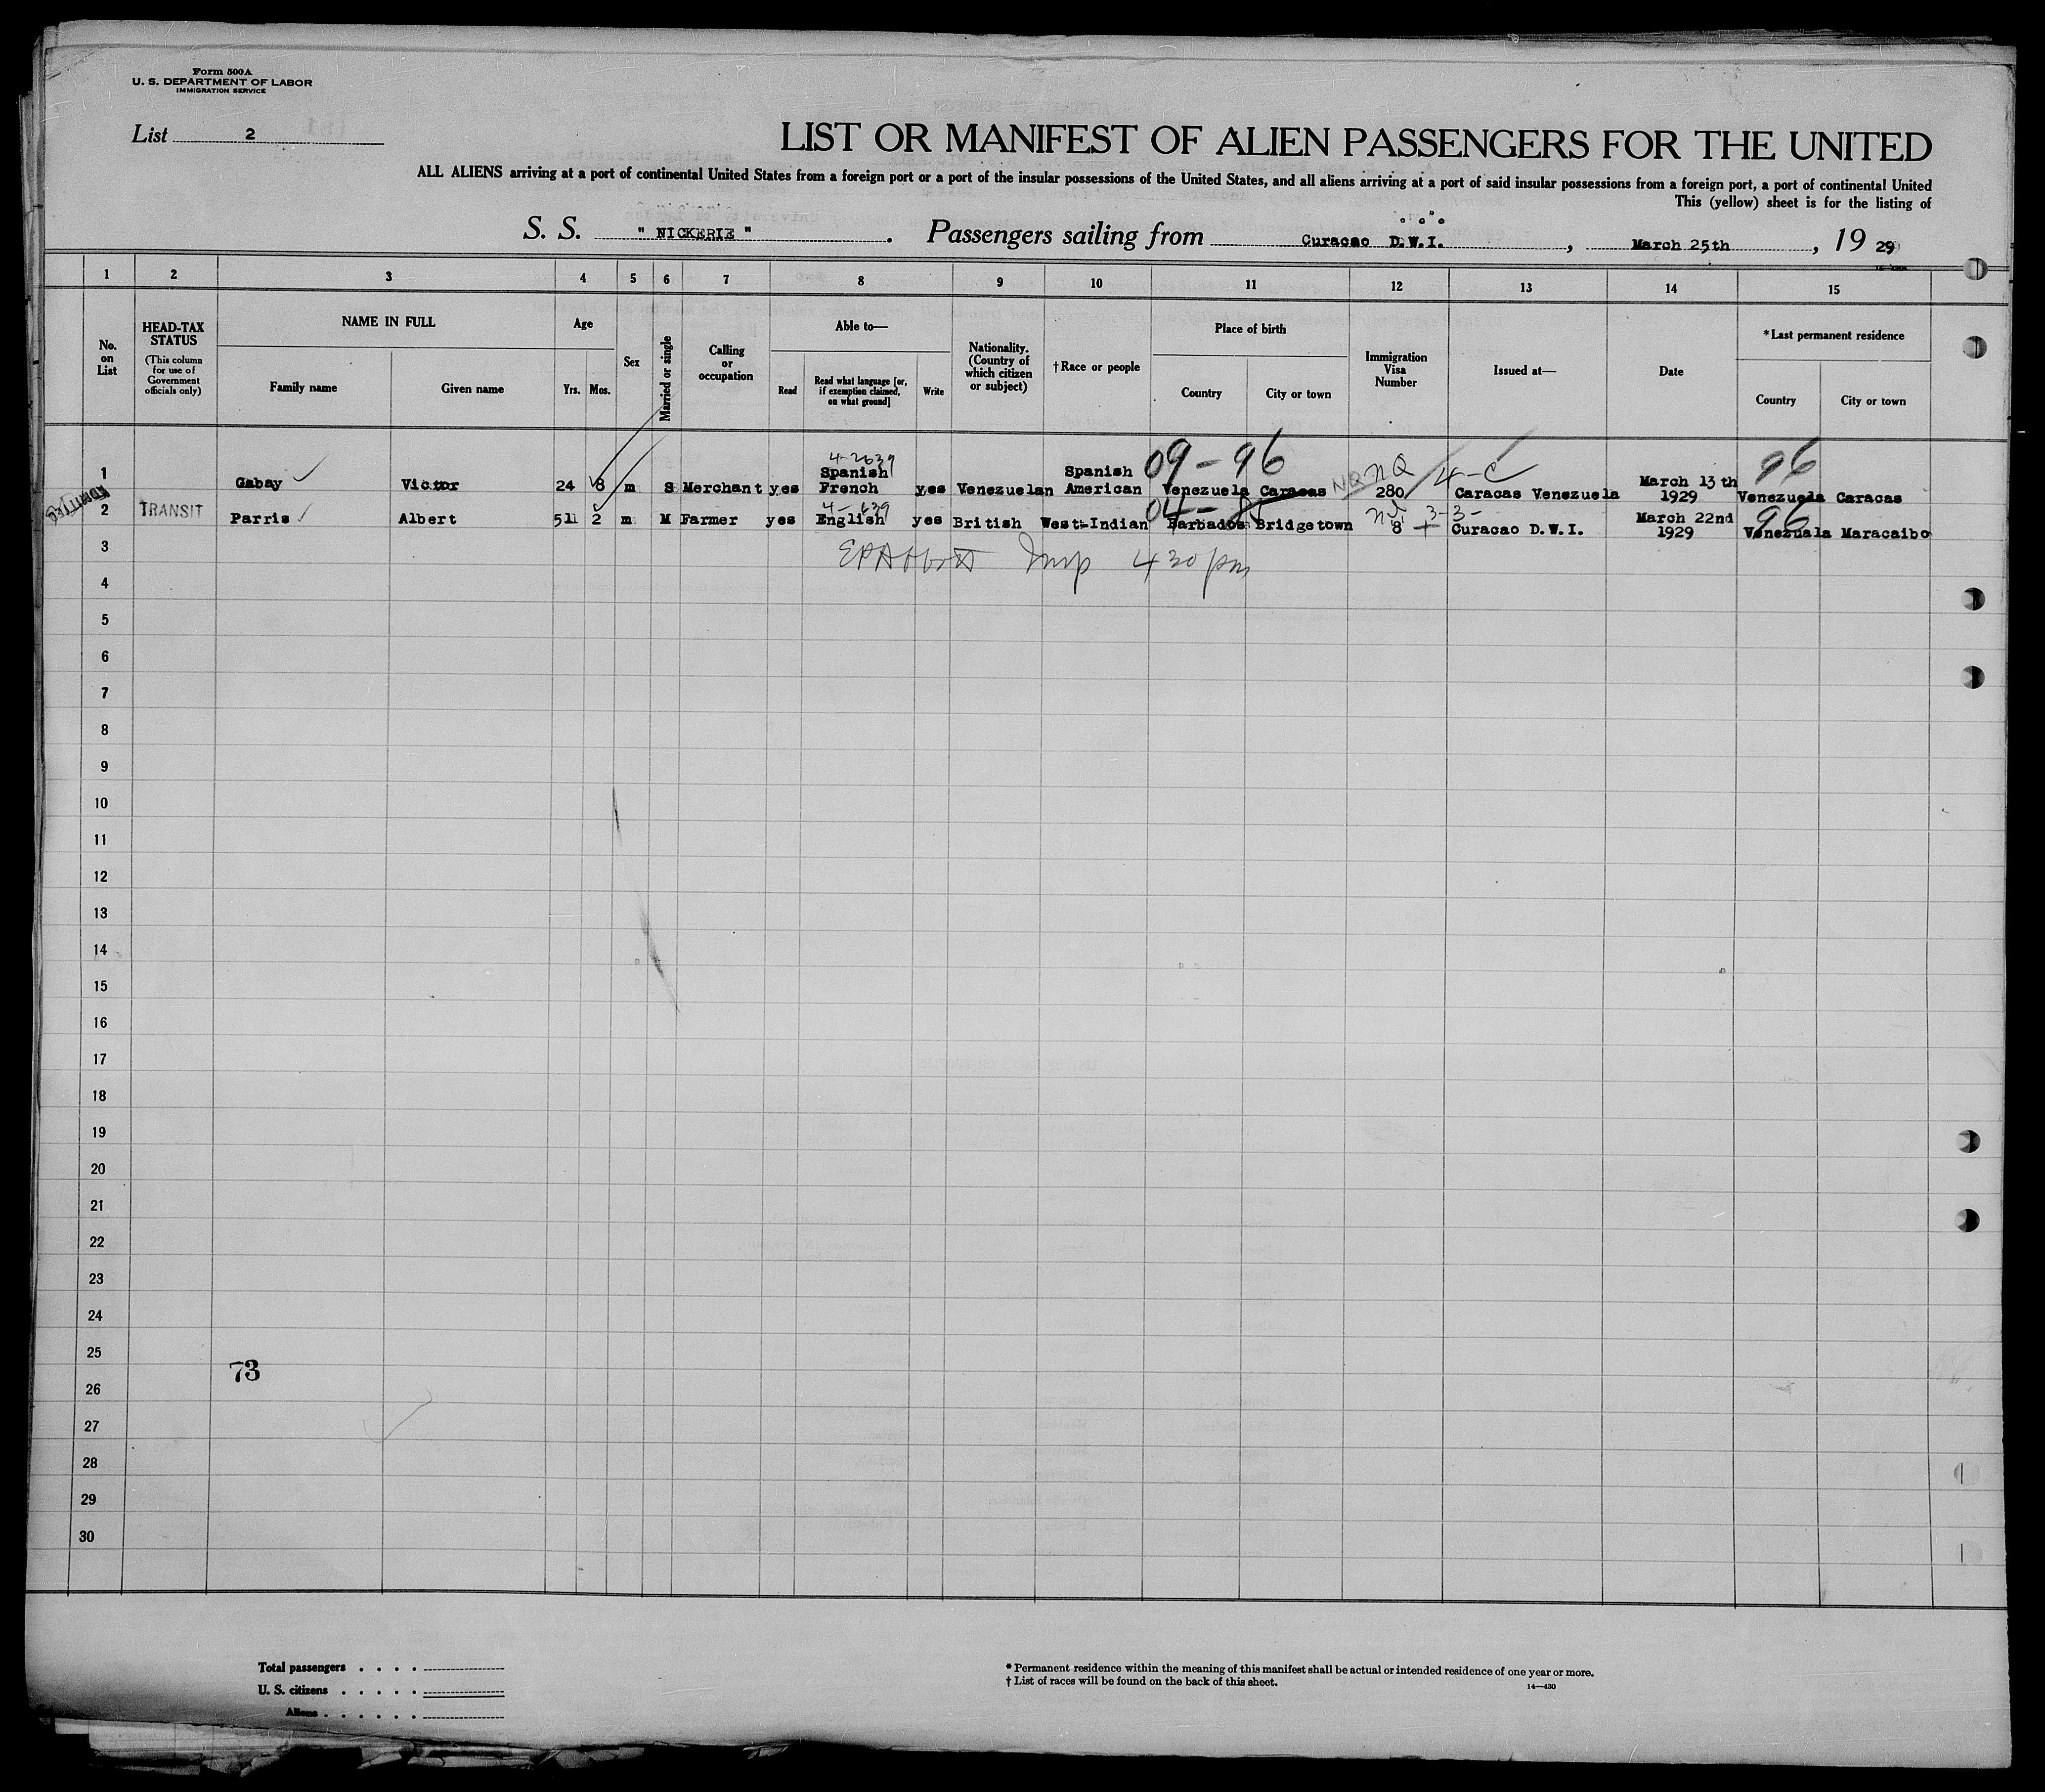 Form 500A
U. S. DEPARTMENT OF LABOR
IMMIGRATION SERVICE
List 2
LIST OR MANIFEST OF ALIEN PASSENGERS FOR THE UNITED
ALL ALIENS arriving at a port of continental United States from a foreign port or a port of the insular possessions of the United States, and all aliens arriving at a port of said insular possessions from a foreign port, a port of continental United
This (yellow) sheet is for the listing of
S. S. " NICKERIE ". Passengers sailing from Curacao D.W.I., March 25th, 19 29
1 2 3 4 5 6 7 8 9 10 11 12 13 14 15
No. on List
HEAD-TAX STATUS
(This column for use of Government officials only)
NAME IN FULL
Family name
Given name
Age
Yrs.
Mos.
Sex
Married or single
Calling or occupation
Able to—
Read
Read what language [or, if exemption claimed, on what ground]
Write
Nationality. (Country of which citizen or subject)
† Race or people
Place of birth
Country
City or town
Immigration Visa Number
Issued at—
Date
* Last permanent residence
Country
City or town
1 Gabay Victor 24 8 m S Merchant yes Spanish French yes Venezuelan Spanish American Venezuela Caracas 280 Caracas Venezuela March 13th 1929 Venezuela Caracas
09-96 NQ 4-C 96
ADMITTED
2 TRANSIT Parris Albert 51 2 m M Farmer yes English yes British West-Indian Barbados Bridgetown 8 Curacao D.W.I. March 22nd 1929 Venezuala Maracaibo
3-3- 96
3
Insp 4 30 pm
4
5
6
7
8
9
10
11
12
13
14
15
16
17
18
19
20
21
22
23
24
25
73
26
27
28
29
30
Total passengers . . . .
U. S. citizens . . . . .
Aliens . . . . . .
* Permanent residence within the meaning of this manifest shall be actual or intended residence of one year or more.
† List of races will be found on the back of this sheet.
14—430